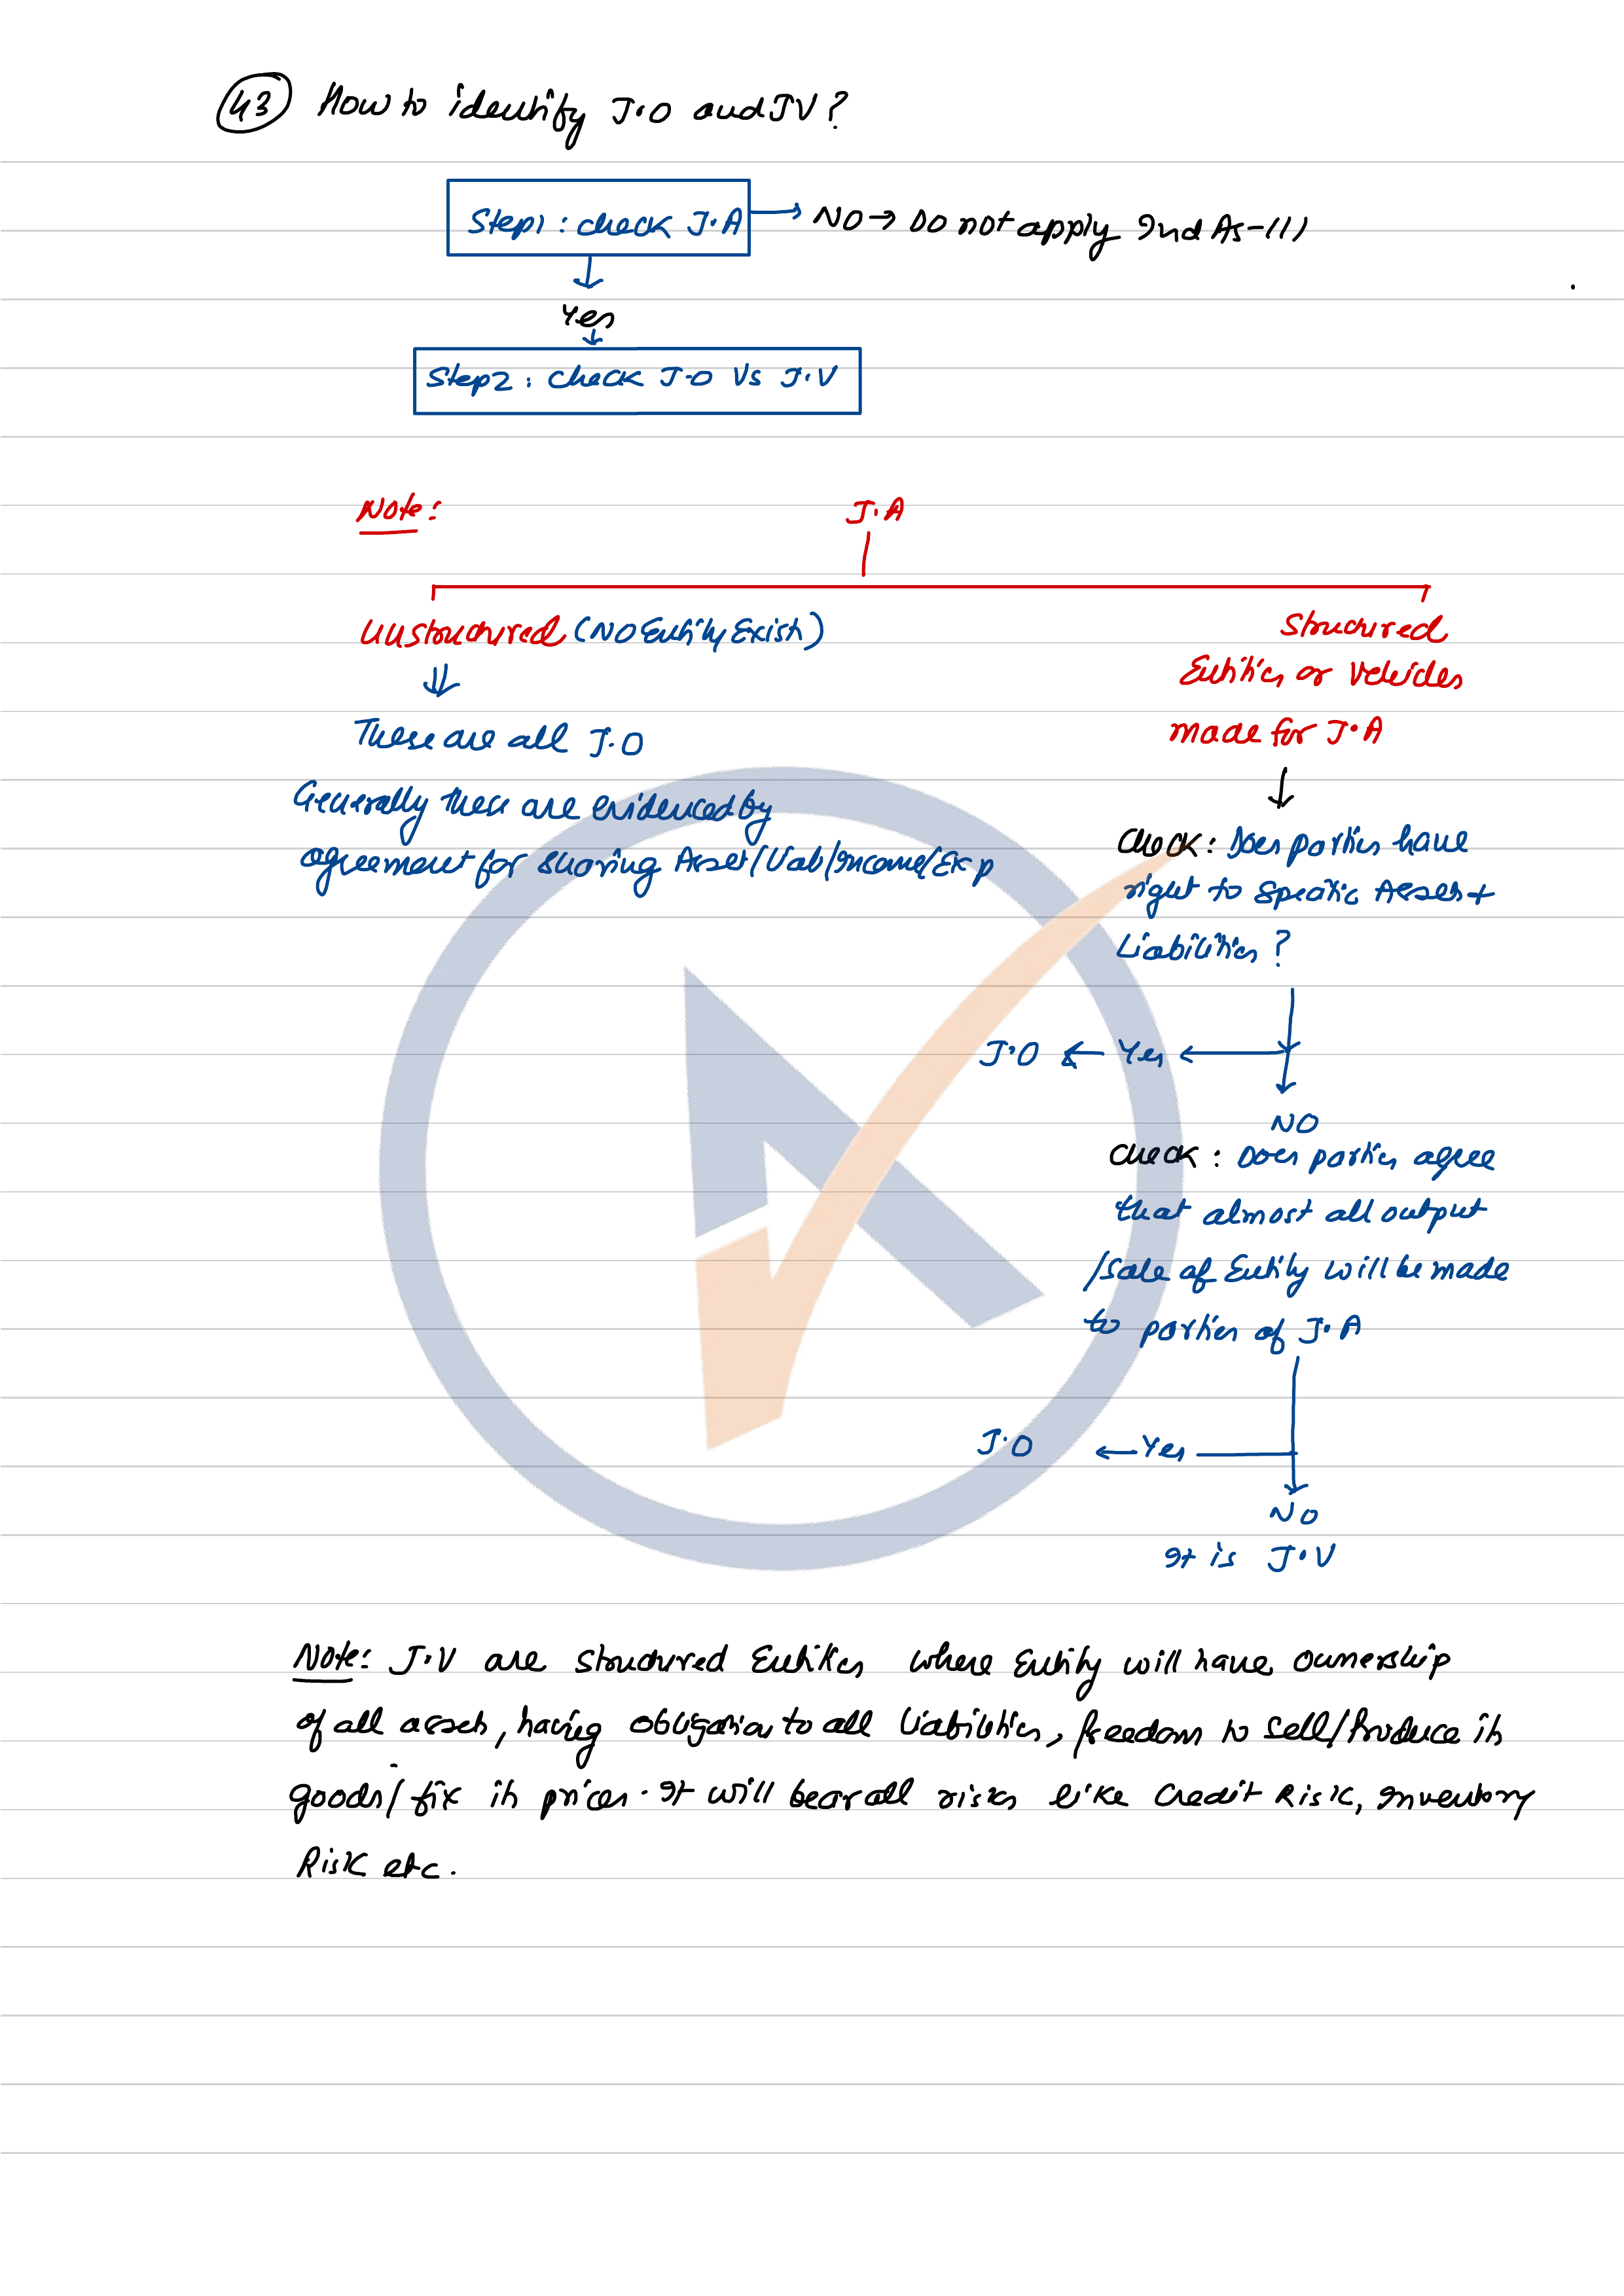 43 How to identify J.O and JV?
Step1 : check J.A → NO → Do not apply Ind As-111
Yes
Step2 : check J.O Vs J.V
Note: J.A
Unstructured (NO Entity Exist)
These are all J.O
Generally these are evidenced by
agreement for sharing Asset/Liab/Income/Exp
Structured
Entities or Vehicles
made for J.A
Check : Does parties have
right to specific Assets +
Liabilities ?
J.O ← Yes ←
NO
check : Does parties agree
that almost all output
/sale of Entity will be made
to parties of J.A
J.O ← Yes
NO
It is J.V
Note: J.V are structured Entities where Entity will have ownership
of all assets, having obligation to all liabilities, freedom to sell/Produce its
goods/ fix its prices. It will bear all risks like Credit Risk, Inventory
Risk etc.